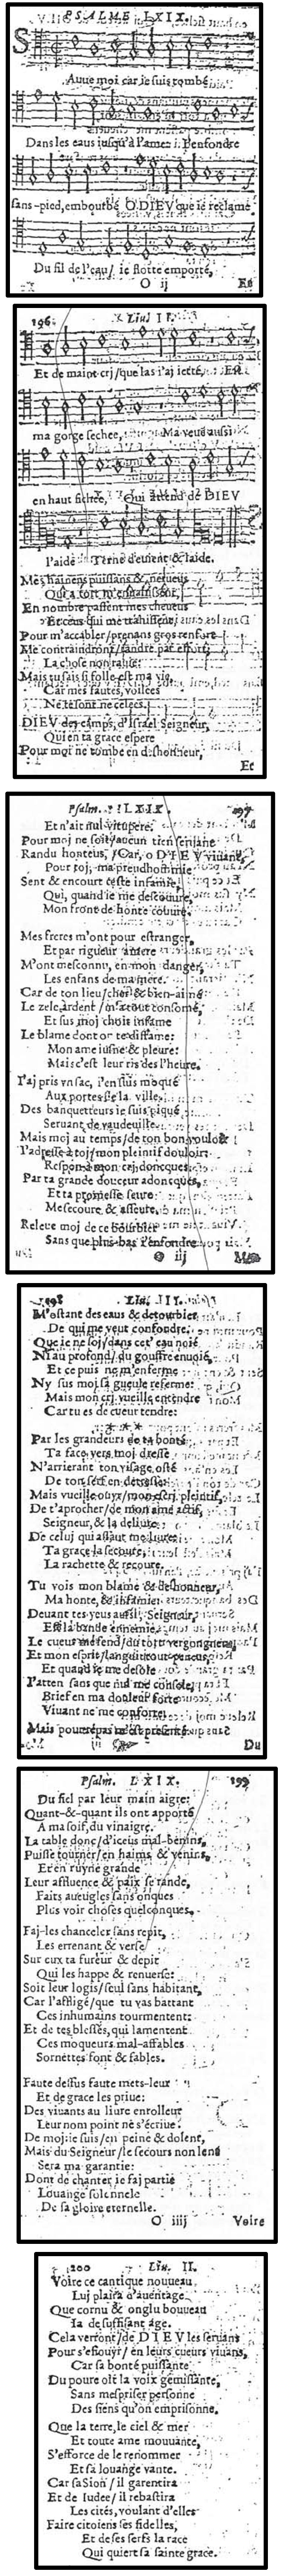 PSALME LXIX.
Sauue moi car ie suis tombé
Dans les eaus iusqu'à l'ame: i. l'enfondre
sans-pied, embourbé O DIEV que ie reclame
Du fil de l'eau / ie flotte emporté,
O ij Et
196 Liu. II.
Et de maint crj / que las i'aj ietté, Est
ma gorge sechee, Ma veuë aussi
en haut fichee, Qui attend de DIEV
l'aide Terne deuient & laide.
Mes haineus puissans & neueus
Qui a tort m'engaussent,
En nombre passent mes cheueus
Et ceus qui me trahissent,
Pour m'accabler / prenans gros renfort
Me contraindront / randre par effort,
La chose non rauie:
Mais tu sais si folle est ma vie,
Car mes fautes, voilees
Ne te sont ne celees.
DIEV des camps, d'Israel Seigneur,
Qui en ta grace espere
Pour moi ne tombe en deshonneur,
Et
Psalm. LXIX. 197
Et n'ait nul vitupere.
Pour moj ne soit / aucun tien seruant
Randu honteus, / Car, o DIEV viuant,
Pour toj, ma preudhommie
Sent & encourt ceste infamie,
Qui, quand ie me descouure,
Mon front de honte couure.
Mes freres m'ont pour estranger,
Et par rigueur amere
M'ont mesconnu, en mon danger,
Les enfans de ma mere.
Car de ton lieu / cher & bien-aimé
Le zele ardent / m'a tout consomé,
Et sus moj choit infame
Le blame dont on te diffame:
Mon ame iusne & pleure:
Mais c'est leur ris des l'heure.
I'aj pris vn sac, i'en suis moqué
Aux portes de la ville,
Des banquetteurs ie suis piqué
Seruant de vaudeuille.
Mais moj au temps / de ton bon vouloir
I'adresse à toj / mon pleintif douloir:
Respon à mon crj doncques
Par ta grande douceur adoncques,
Et ta promesse seure
Me secoure, & asseure.
Releue moj de ce bourbier
Sans que plus-bas i'enfondre
O iij M'o
198 Liu. II.
M'ostant des eaus & detourbier
De qui me veut confondre.
Que ie ne soj / dans cet' eau noié
Ni au profond / du gouffre enuoié,
Et ce puis ne m'enserme
Ny sus moj sa gueule referme:
Mais mon crj vueille entendre
Car tu es de cueur tendre:
* * *
Par les grandeurs de ta bonté
Ta face vers moj dresse
N'arrierant ton visage osté
De ton serf en detresse:
Mais vueille ouyr / mon crj pleintif,
De t'aprocher / de mon ame actif,
Seigneur, & la deliure
De celuj qui assaut me liure:
Ta grace la secoure,
La rachette & recoure.
Tu vois mon blame & deshonneur,
Ma honte, & infamie:
Deuant tes yeus aussi, Seigneur,
Est la bande ennemie,
Le cueur me fend / du tort vergongneus,
Et mon esprit / languit tout-peneus,
Et quand ie me desole
I'atten sans que nul me console,
Brief en ma douleur forte
Viuant ne me conforte.
Mais pour repas m'est presenté
Du
Psalm. LXIX. 199
Du fiel par leur main aigre:
Quant-&-quant ils ont apporté
A ma soif, du vinaigre.
La table donc / d'iceus mal-benins,
Puisse tourner / en haims & venins,
Et en ruyne grande
Leur affluence & paix se rande,
Faits aueugles sans onques
Plus voir choses quelconques.
Faj-les chanceler sans repit,
Les errenant & verse
Sur eux ta fureur & depit
Qui les happe & renuerse:
Soit leur logis / seul sans habitant,
Car l'affligé / que tu vas battant
Ces inhumains tourmentent:
Et de tes blessés, qui lamentent
Ces moqueurs mal-affables
Sornettes font & fables.
Faute dessus faute mets-leur
Et de grace les priue:
Des viuans au liure enrolleur
Leur nom point ne s'écriue.
De moj: ie suis / en peine & dolent,
Mais du Seigneur / le secours non lent
Sera ma garantie:
Dont de chanter ie faj partie
Louange solennele
De sa gloire eternelle.
O iiij Voire
200 Liu. II.
Voire ce cantique nouueau
Luj plaira d'auentage
Que cornu & onglu bouueau
Ia de suffisant âge.
Cela verront / de DIEV les seruans
Pour s'esiouyr / en leurs cueurs viuans,
Car sa bonté puissante
Du poure oit la voix gemissante,
Sans mespriser personne
Des siens qu'on emprisonne.
Que la terre, le ciel & mer
Et toute ame mouuante,
S'efforce de le renommer
Et sa louange vante.
Car sa Sion / il garentira
Et de Iudee / il rebastira
Les cités, voulant d'elles
Faire citoiens ses fidelles,
Et de ses serfs la race
Qui quiert sa sainte grace.